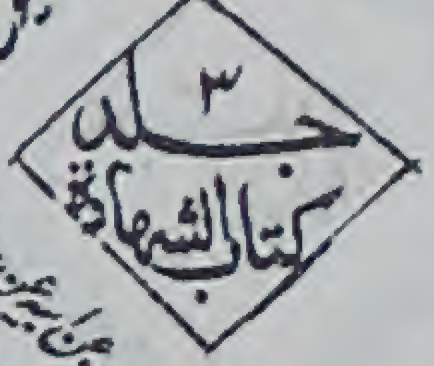 ٣
جلد
كتاب الشهادة